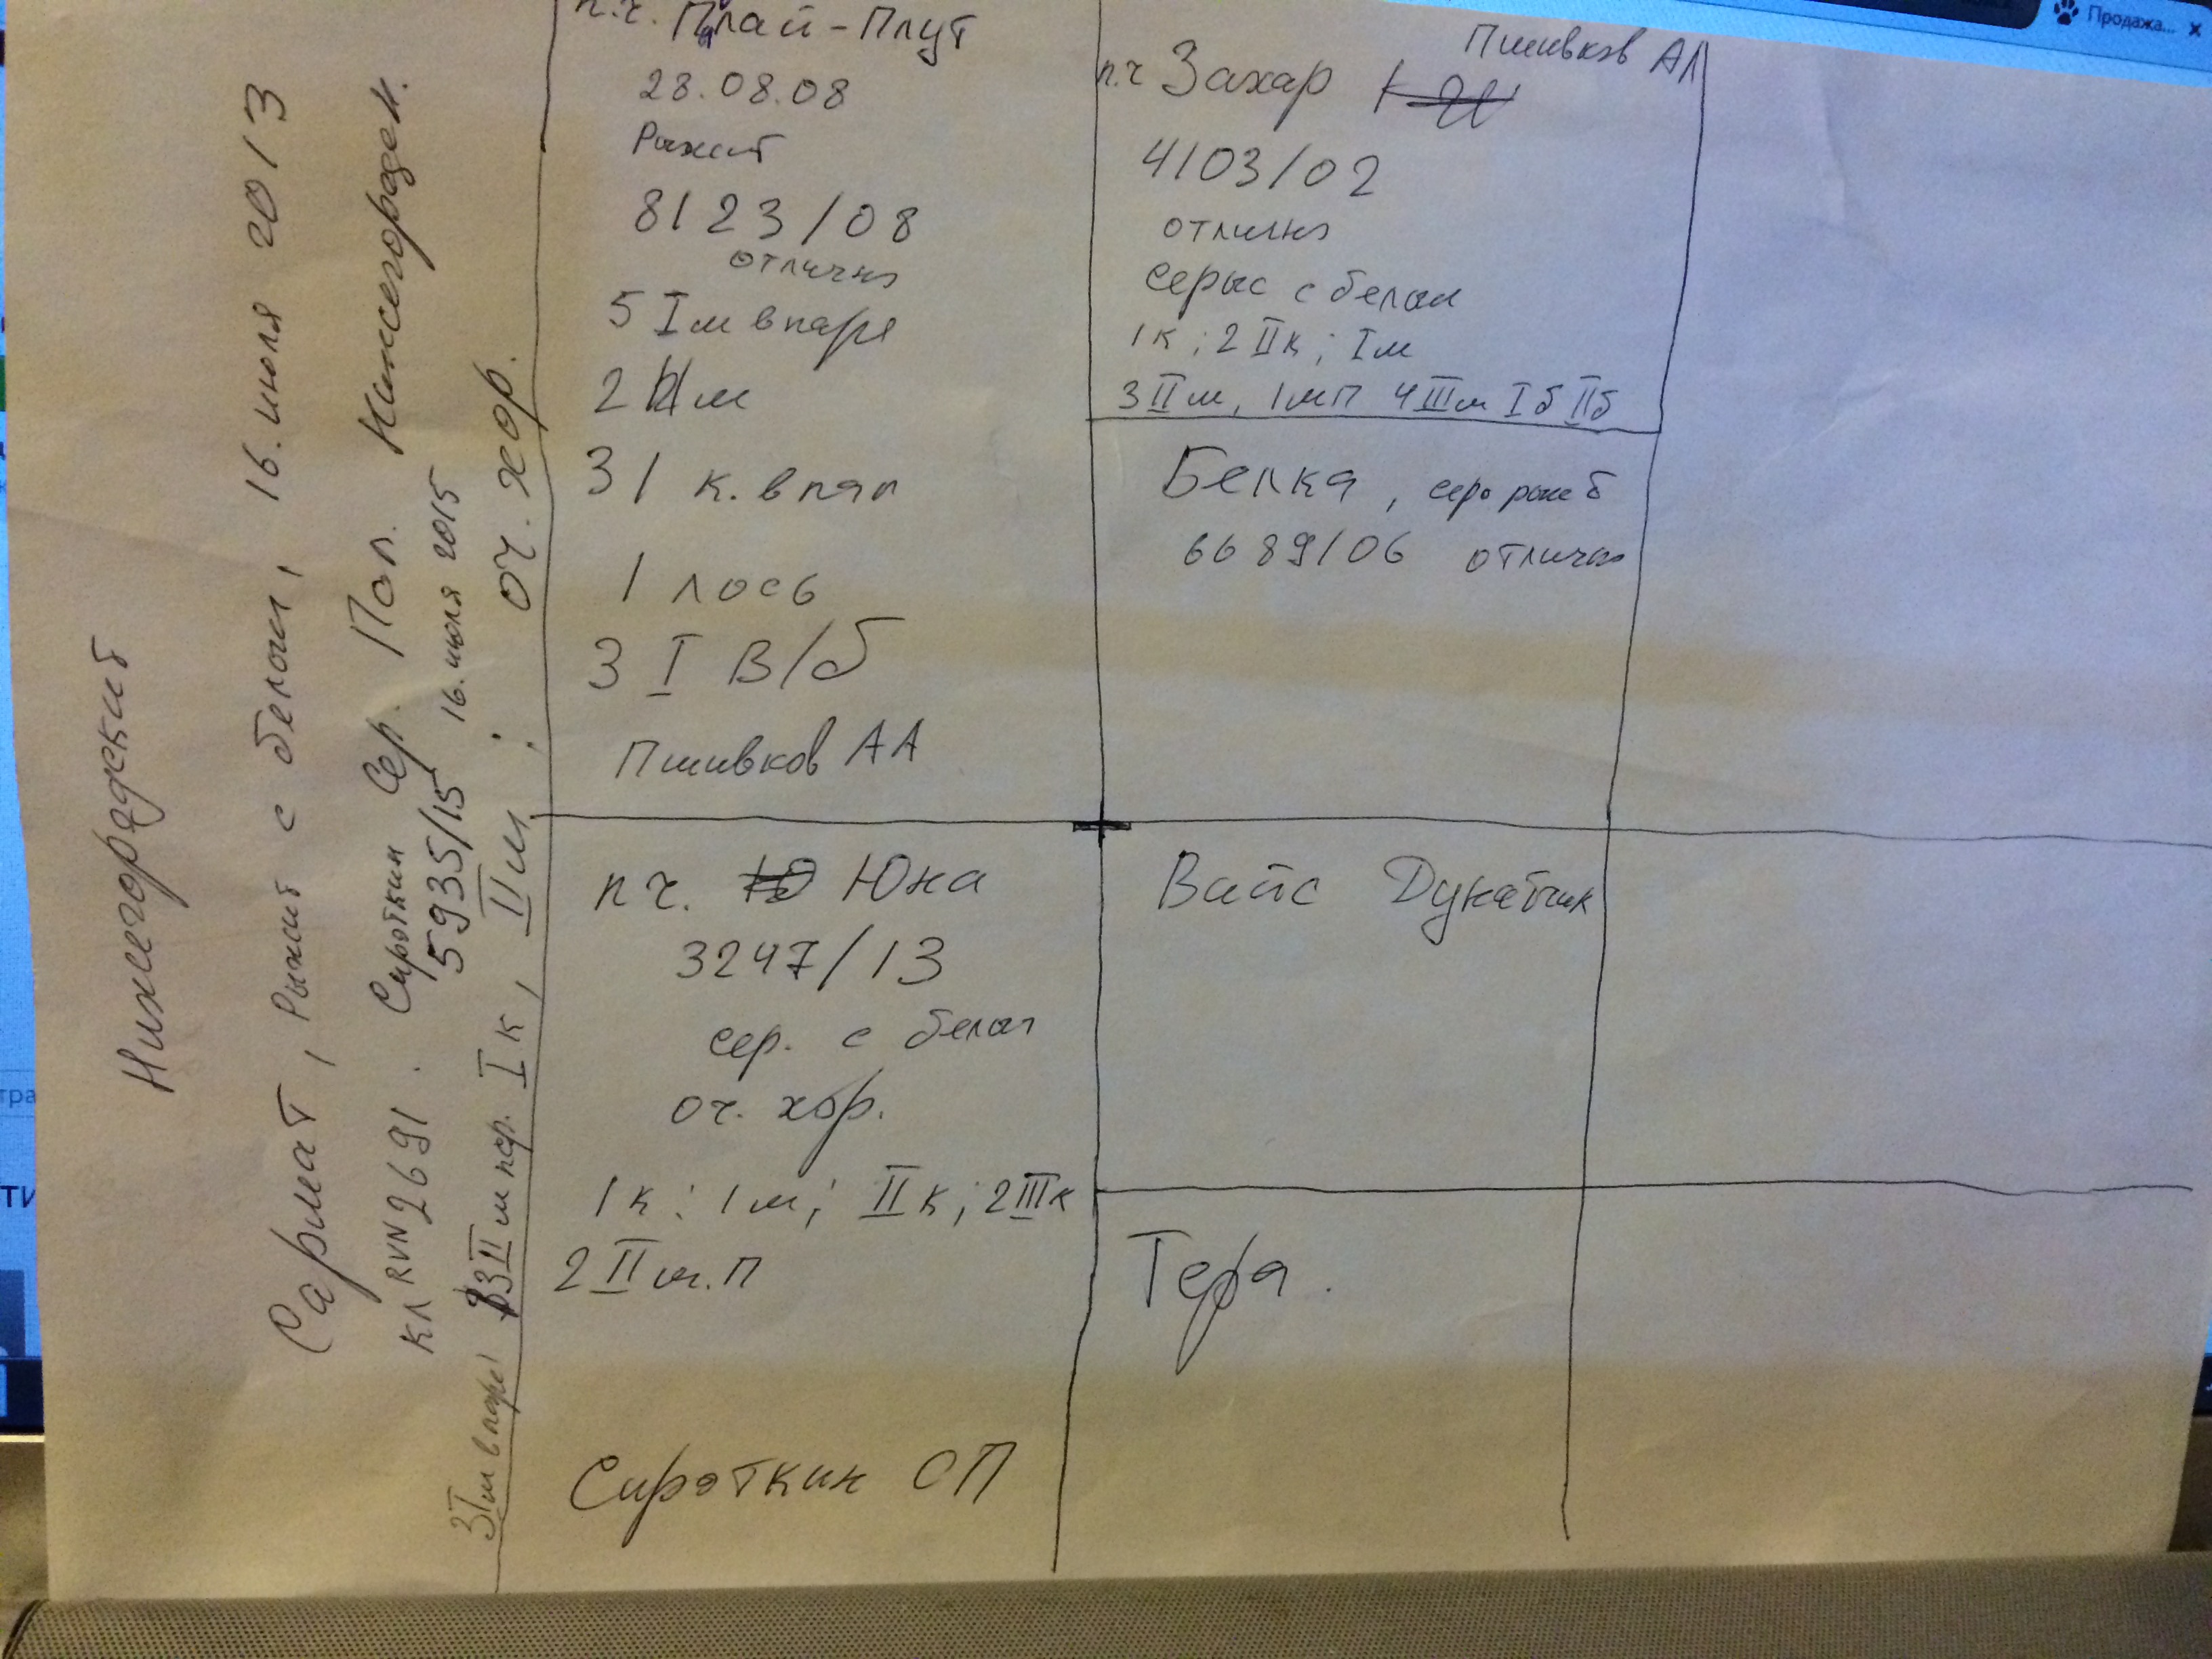 Нижегородский
Сармат, Рыжий с белым, 16. июля 2013
КЛ RVN 2691. Сироткин Сер. Пол. Нижегородск.
5935/15 16. июля 2015
3 I м в паре 3 II м пар. I к, II м; оч. хор.
п.ч. Плай-Плут
28.08.08
Рыжий
8123/08
отлично
5 I м в паре
2 м
3 1 к. в пар
1 лось
3 I В/б
Пшивков АА
п.ч Захар
Пшивков АЛ
4103/02
отлично
серые с белым
1к; 2 IIк; Iм
3 IIм, 1мп 4 IIIм Iб IIб
Белка, серорыж б
6689/06 отлично
п ч. Юна
3247/13
сер. с белой
оч. хор.
1к; 1м; IIк; 2 IIIк
2 II м.П
Сироткин СП
Вайс Дунайчик
Тера.
Продажа...
тра